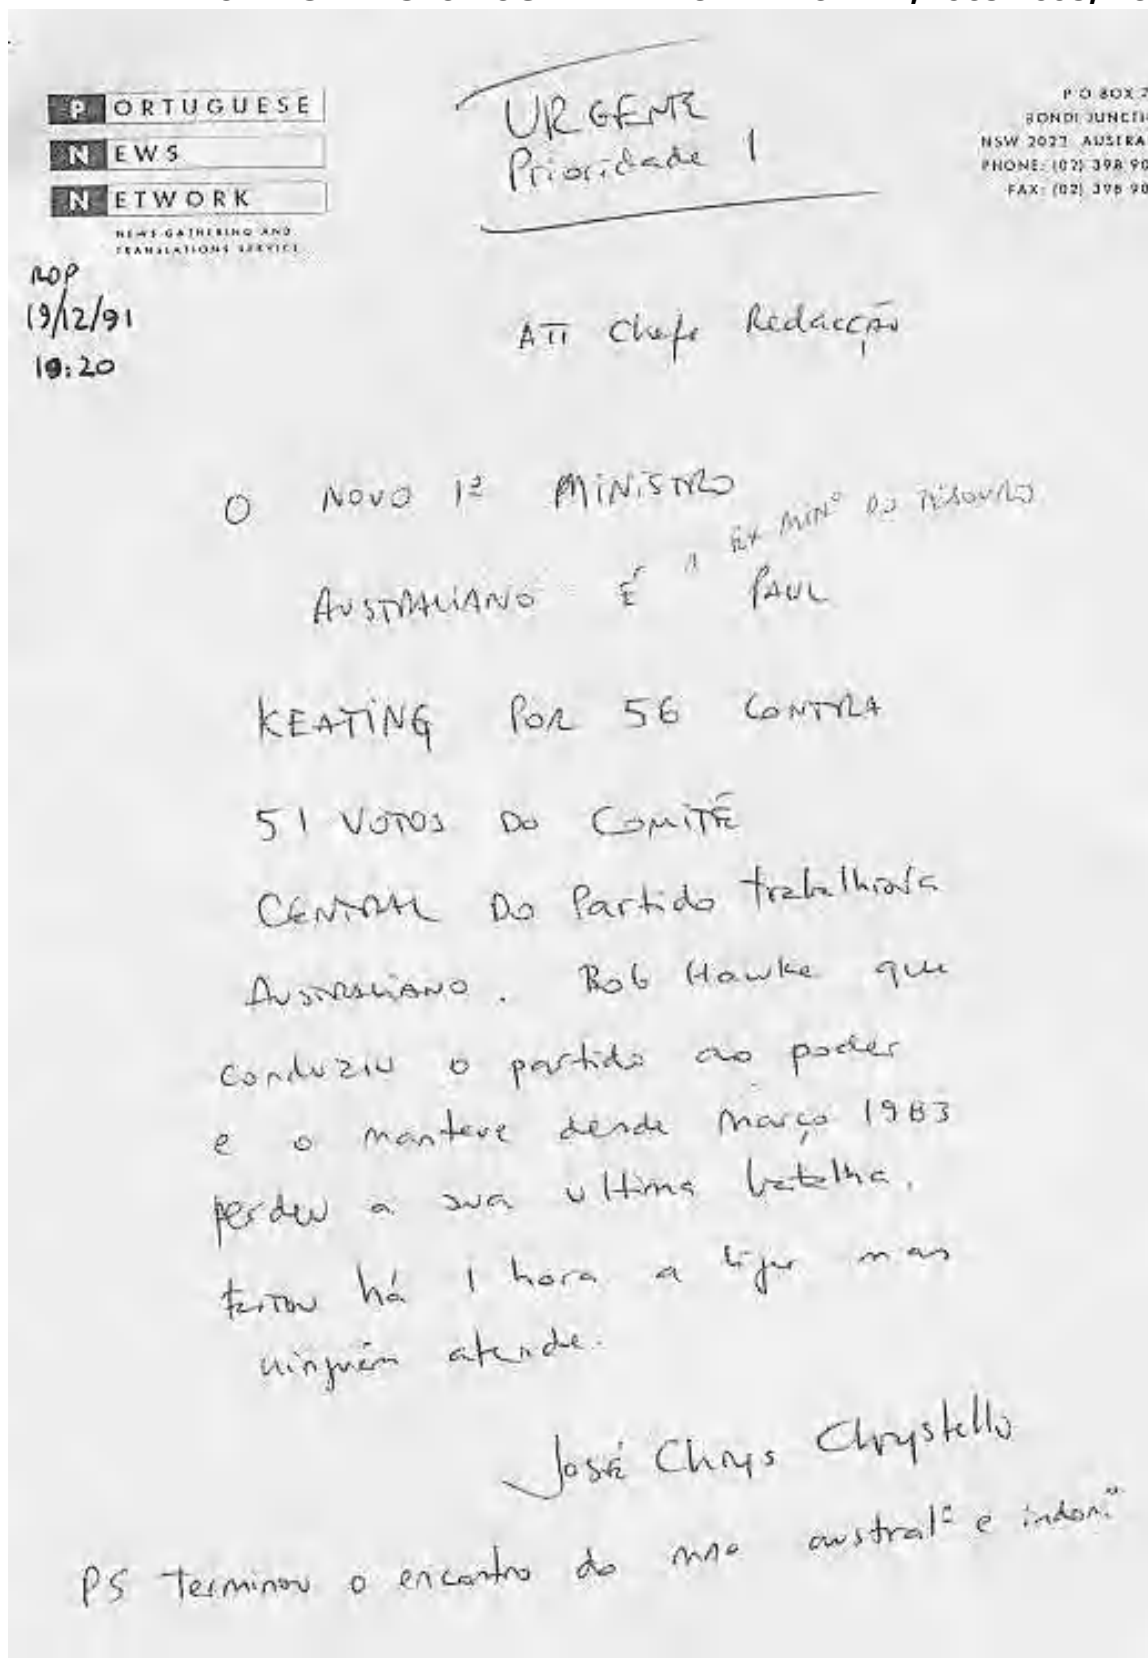 PORTUGUESE
NEWS
NETWORK
NEWS GATHERING AND
TRANSLATIONS SERVICE
URGENTE
Prioridade 1
P O BOX
BONDI JUNCTI
NSW 2022 AUSTRA
PHONE: (02) 398 90
FAX: (02) 398 90
RDP
19/12/91
19:20
ATT Chefe Redacção
O NOVO 1º MINISTRO
EX MINº DO TESOURO
AUSTRALIANO É PAUL
KEATING POR 56 CONTRA
51 VOTOS DO COMITÉ
CENTRAL DO Partido trabalhista
AUSTRALIANO. Bob Hawke que
conduziu o partido ao poder
e o manteve desde Março 1983
perdeu a sua ultima batalha.
há 1 hora a ligar mas
ninguém atende.
José Chrys Chrystello
PS Terminou o encontro do mne austral° e indon.°